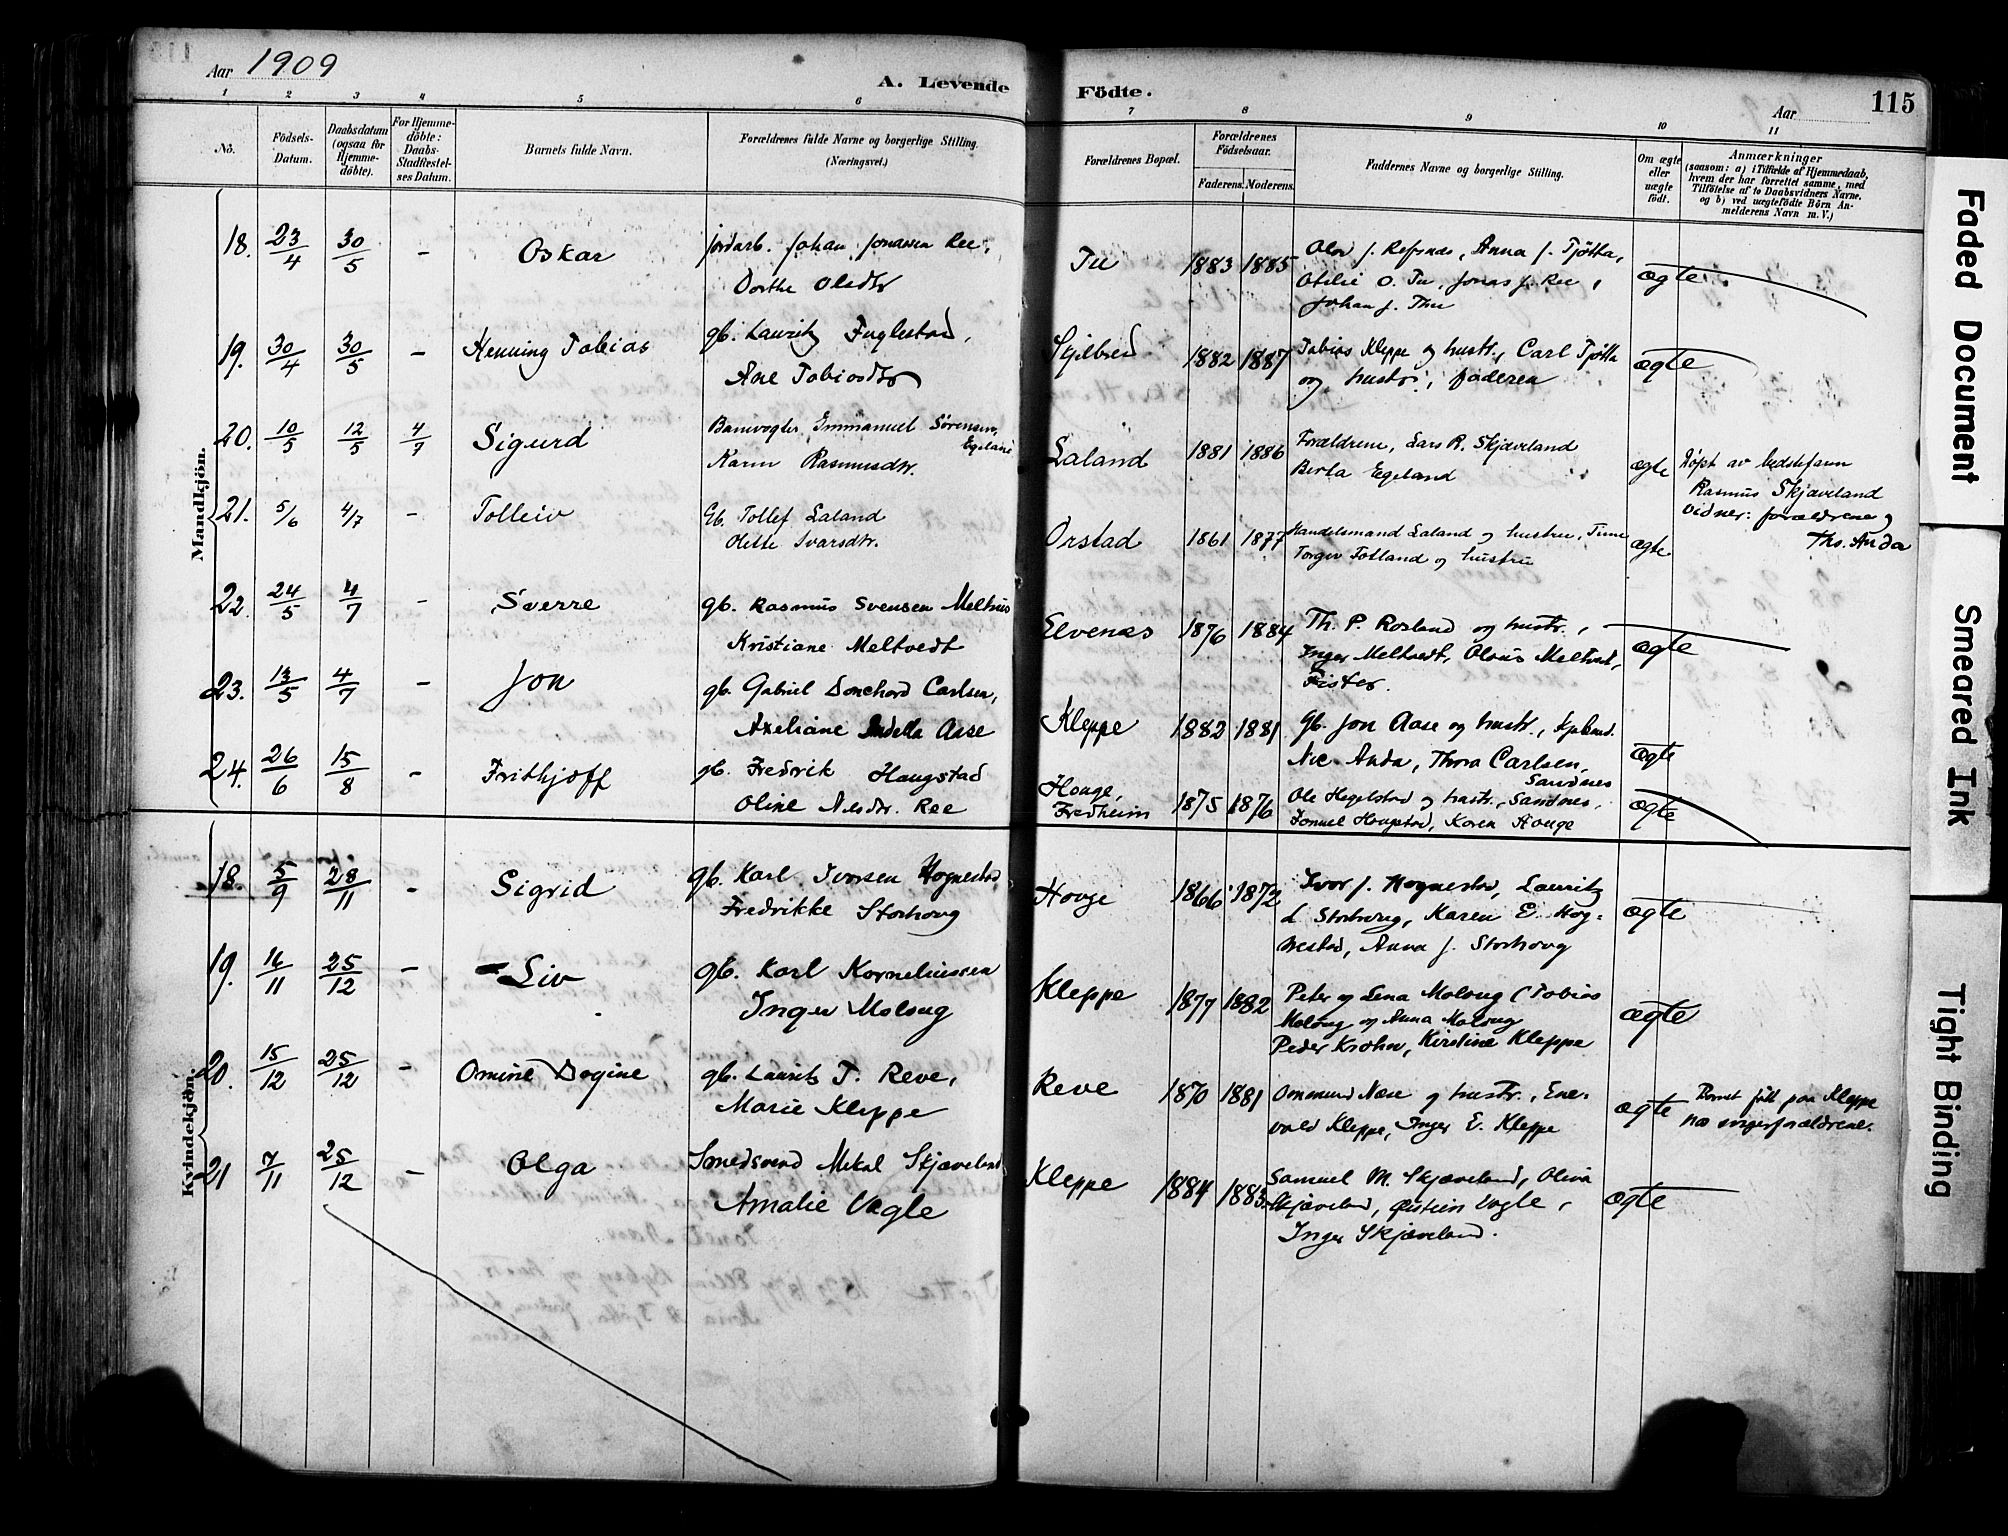 Aar 1909
A. Levende Födte.
Aar
115
1 2 3 4 5 6 7 8 9 10 11
Nô.
Födsels-Datum.
Daabsdatum (ogsaa for Hjemme-döbte).
For Hjemme-döbte: Daabs-Stadfæstel-ses Datum.
Barnets fulde Navn.
Forældrenes fulde Navne og borgerlige Stilling. (Næringsvei.)
Forældrenes Bopæl.
Forældrenes Födselsaar.
Faderens. Moderens.
Faddernes Navne og borgerlige Stilling.
Om ægte eller uægte födt.
Anmærkninger
(saasom: a) i Tilfælde af Hjemmedaab, hvem der har forrettet samme, med Tilföielse af to Daabsvidners Navne. og b) ved uægtefödte Börn An-melderens Navn m. V.)
Mandkjön.
18. 23/4 30/5 - Oskar
jordarb. Johan Jonassen Ree,
Dorthe Olsdtr
Tu 1883 1885
Olov J. Refsnes, Anna J. Tjøtta,
Otilie O. Tu, Jonas J. Ree,
Johan J. Thu
ægte
19. 30/4 30/5 - Henning Tobias
gb. Lauritz Fuglestad,
Ane Tobiasdtr
Skjelbred 1882 1887
Tobias Kleppe og hustr., Carl Tjøtta
og hustr., faderen
ægte
20. 10/5 12/5 4/7 Sigurd
Banevogter Emmanuel Sörensen, Egeland
Karen Rasmusdtr.
Laland 1881 1886
Forældrene, Lars R. Skjæveland
Berta Egeland
ægte
Döpt av bedstefaren
Rasmus Skjæveland
vidner: forældrene og
Ths. Anda
21. 5/6 4/7 - Tolleiv
Gb. Tollef Laland
Olette Ivarsdtr.
Orstad 1861 1877
Handelsmand Laland og hustru, Time
Torger Totland og hustru
ægte
22. 24/5 4/7 - Sverre
gb. Rasmus Svensen Melhus
Kristiane Meltvedt
Elvenes 1876 1884
Th. P. Rosland og hustr.,
Inger Meltvedt, Olaus Meltvedt,
Fister.
ægte
23. 13/5 4/7 - Jon
gb. Gabriel Carlsen,
Axeliane Aase
Kleppe 1882 1881
Gb. Jon Aase og hustr.,
Nic. Anda, Thora Carlsen,
Sandnes
ægte
24. 26/6 15/8 - Frithjoff
gb. Fredrik Haugstad
Oline Nilsdtr. Ree
Houge, Fredheim 1875 1876
Ole Hegelstad og hustr., Sandnes,
Haugstad, Karen Houge
ægte
Kvindekjön.
18. 5/9 28/11 - Sigrid
gb. Karl Ivarsen Hognestad
Fredrikke Storhoug
Houge 1866 1872
Ivar J. Hognestad, Lauritz
L Storhoug, Karen E. Hog-
nestad, Anna J. Storhoug
ægte
19. 16/11 25/12 - Liv
gb. Karl Korneliussen
Inger Malaug
Kleppe 1877 1882
Peter og Lena Malaug, Tobias
Malaug og Anna Malaug
Peder Krohn, Kirstine Kleppe
ægte
20. 15/12 25/12 - Omine Dagine
gb. Laurits T. Reve,
Marie Kleppe
Reve 1870 1881
Ommund Næse og hustr., Ene-
vald Kleppe, Inger E. Kleppe
ægte
Barnet födt paa Kleppe
hos svigerforældrene.
21 7/11 25/12 - Olga
Smedsvend Mikal Skjæveland
Amalie Vagle
Kleppe 1884 1883
Samuel M. Skjæveland, Oliva
Skjæveland, Østein Vagle,
Inger Skjæveland.
ægte
Faded Document
Smeared Ink
Tight Binding